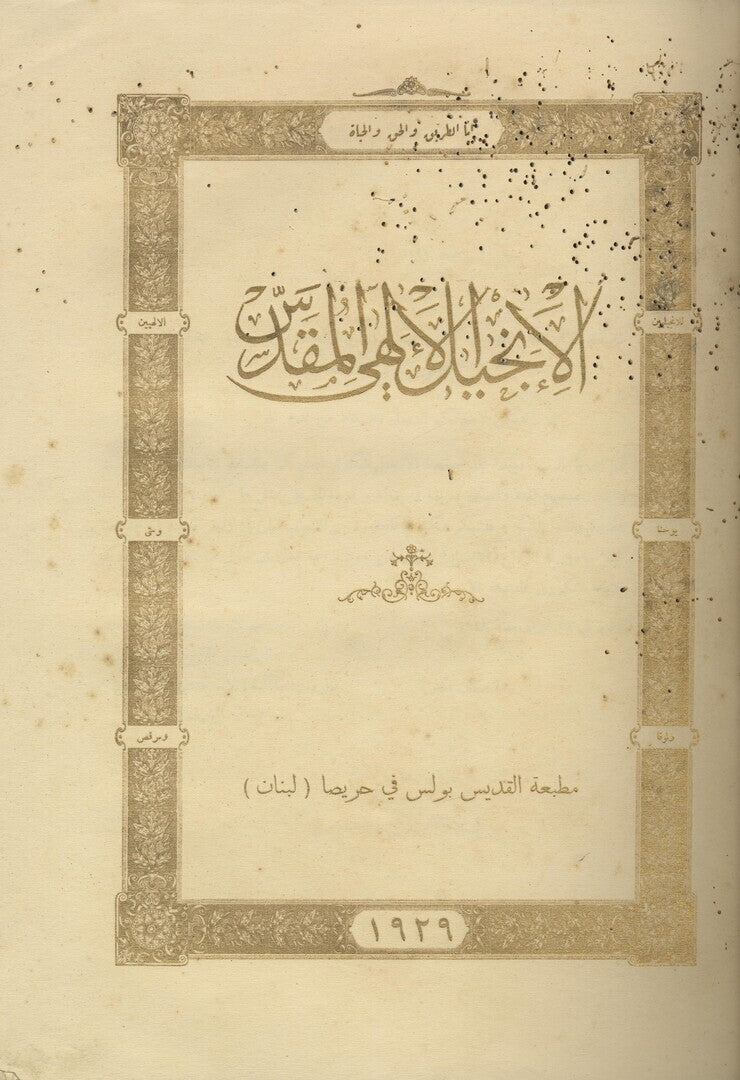 أنا الطريق والحق والحياة
الإنجيل الإلهي المقدّس
للانجيليين
الالهيين
يوحنا
ومتى
ولوقا
ومرقص
مطبعة القديس بولس في حريصا ( لبنان )
١٩٢٩